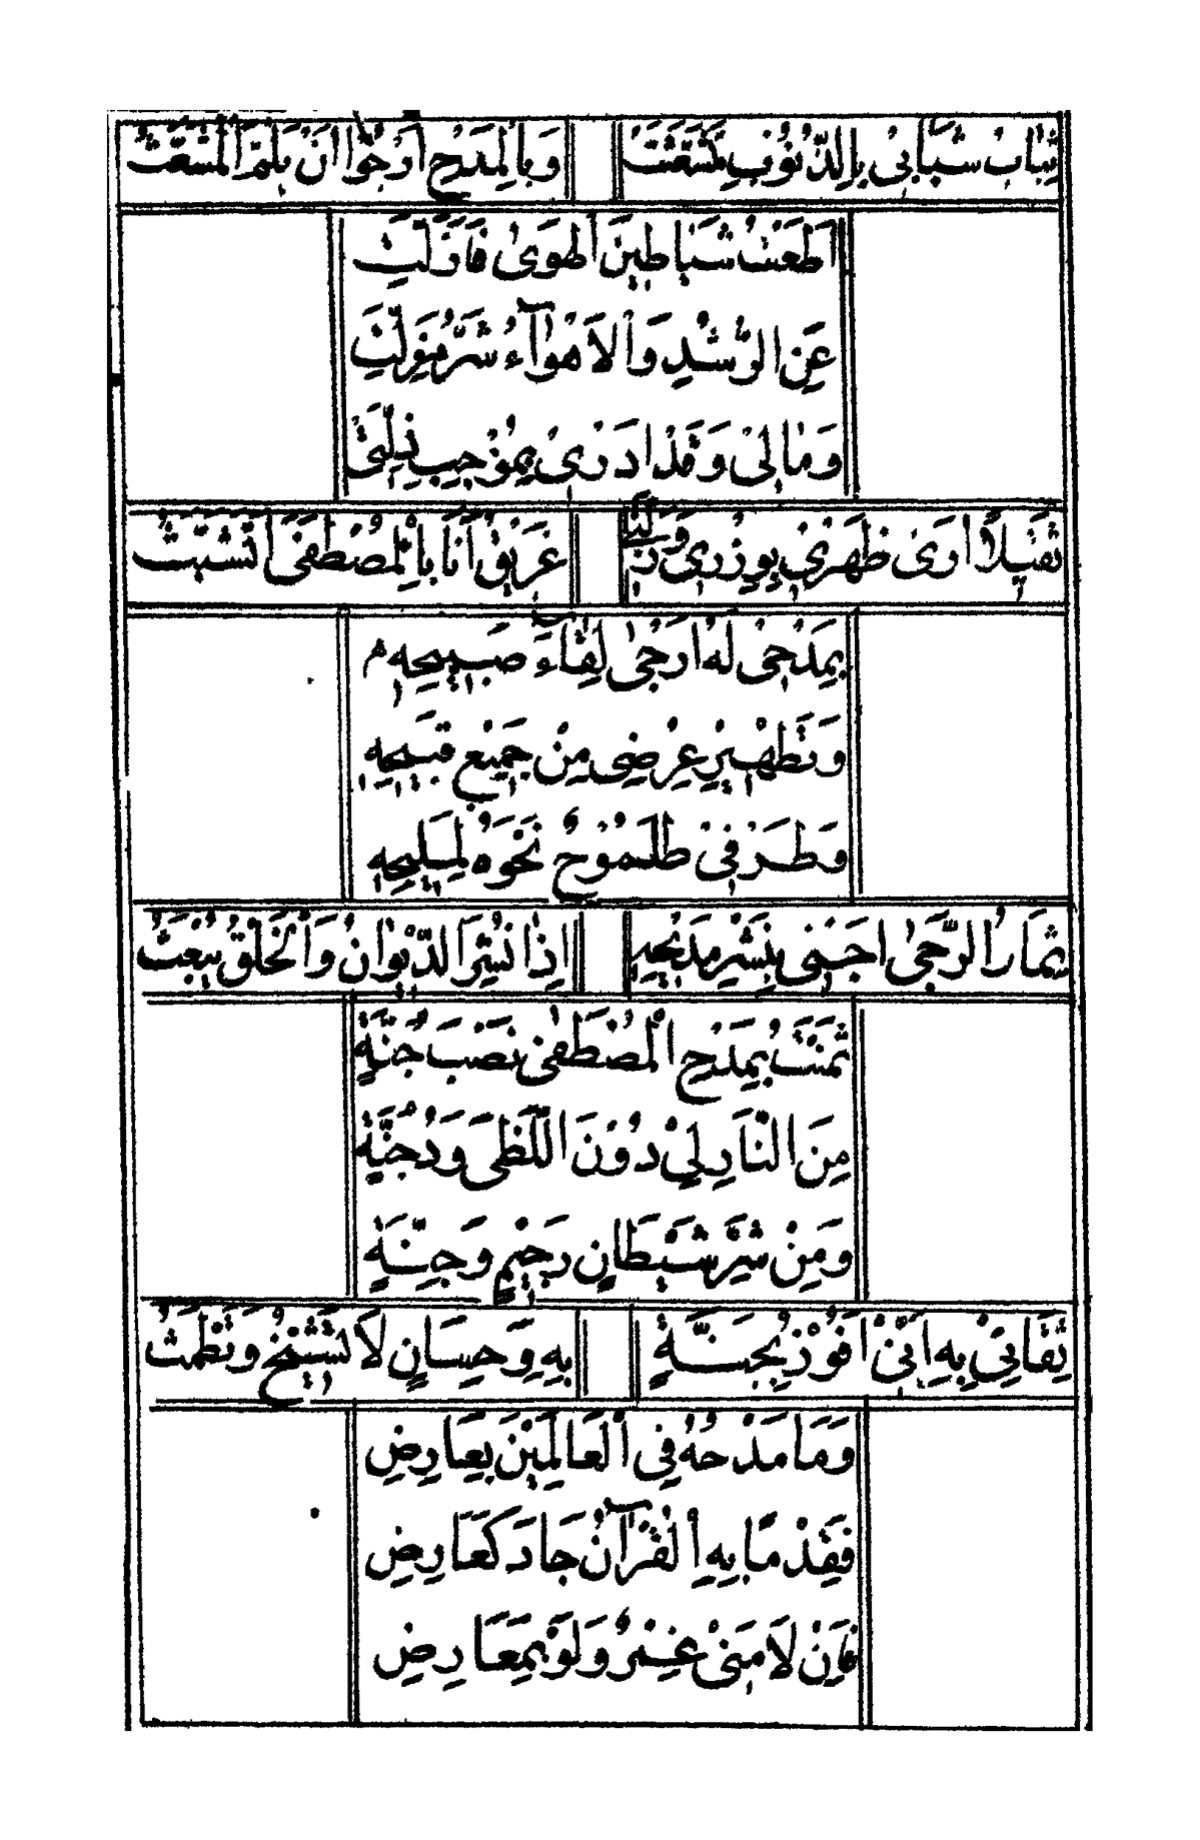 ثِيَابُ شَبَابِىْ بِالذُّنُوْبِ تَشَعَّثَتْ وَبِالْمَدْحِ اَرْجُوْا اَنْ يُلَمَّ الْمُشَعَّثُ
اَطَعْتُ شَيَاطِيْنَ الْهَوٰى فَاَزَلَّتِ
عَنِ الرُّشْدِ وَالْاَهْوَآءُ شَرُّ مُزِلَّتِ
وَمَالِىْ وَقَدْ اَدْرٰى بِمُوْجِبِ ذِلَّتِىْ
ثَقِيْلًا اَرٰى ظَهْرِىْ بِوِزْرِىْ وَزَلَّتِىْ غَرِيْقٌ اَنَا بِالْمُصْطَفٰى اَتَشَبَّثُ
بِمَدْحِىْ لَهٗ اَرْجٰى لِقَاءَ صَبِيْحِهٖ
وَتَطْهِيْرِ عِرْضِىْ مِنْ جَمِيْعِ قَبِيْحِهٖ
وَطَرْفِىْ طَمُوْحٌ نَحْوَهٗ لِمَلِيْحِهٖ
ثِمَارُ الرَّجٰى اَجْنِىْ بِنَشْرِ مَدِيْحِهٖ اِذَا نُشِرَ الدِّيْوَانُ وَالْخَلْقُ يُبْعَثُ
ثَمَنْتُ بِمَدْحِ الْمُصْطَفٰى نَصْبَ جُنَّةٍ
مِنَ النَّارِ لِىْ دُوْنَ اللَّظٰى وَدُجُنَّةٍ
وَمِنْ شَرِّ شَيْطَانٍ رَجِيْمٍ وَجِنَّةٍ
ثِقَاتِىْ بِهٖ اَنِّىْ اَفُوْزُ بِجَنَّةٍ بِهٖ وَحِسَانٍ لَا تَشِيْخُ وَتَطْمِثُ
وَمَا مَدْحُهٗ فِى الْعَالَمِيْنَ بِعَارِضِ
فَقِدْمًا بِهِ الْقُرْآنُ جَادَ كَعَارِضِ
فَاِنْ لَامَنِىْ غِرٌّ وَلَوْ بِمَعَارِضِ